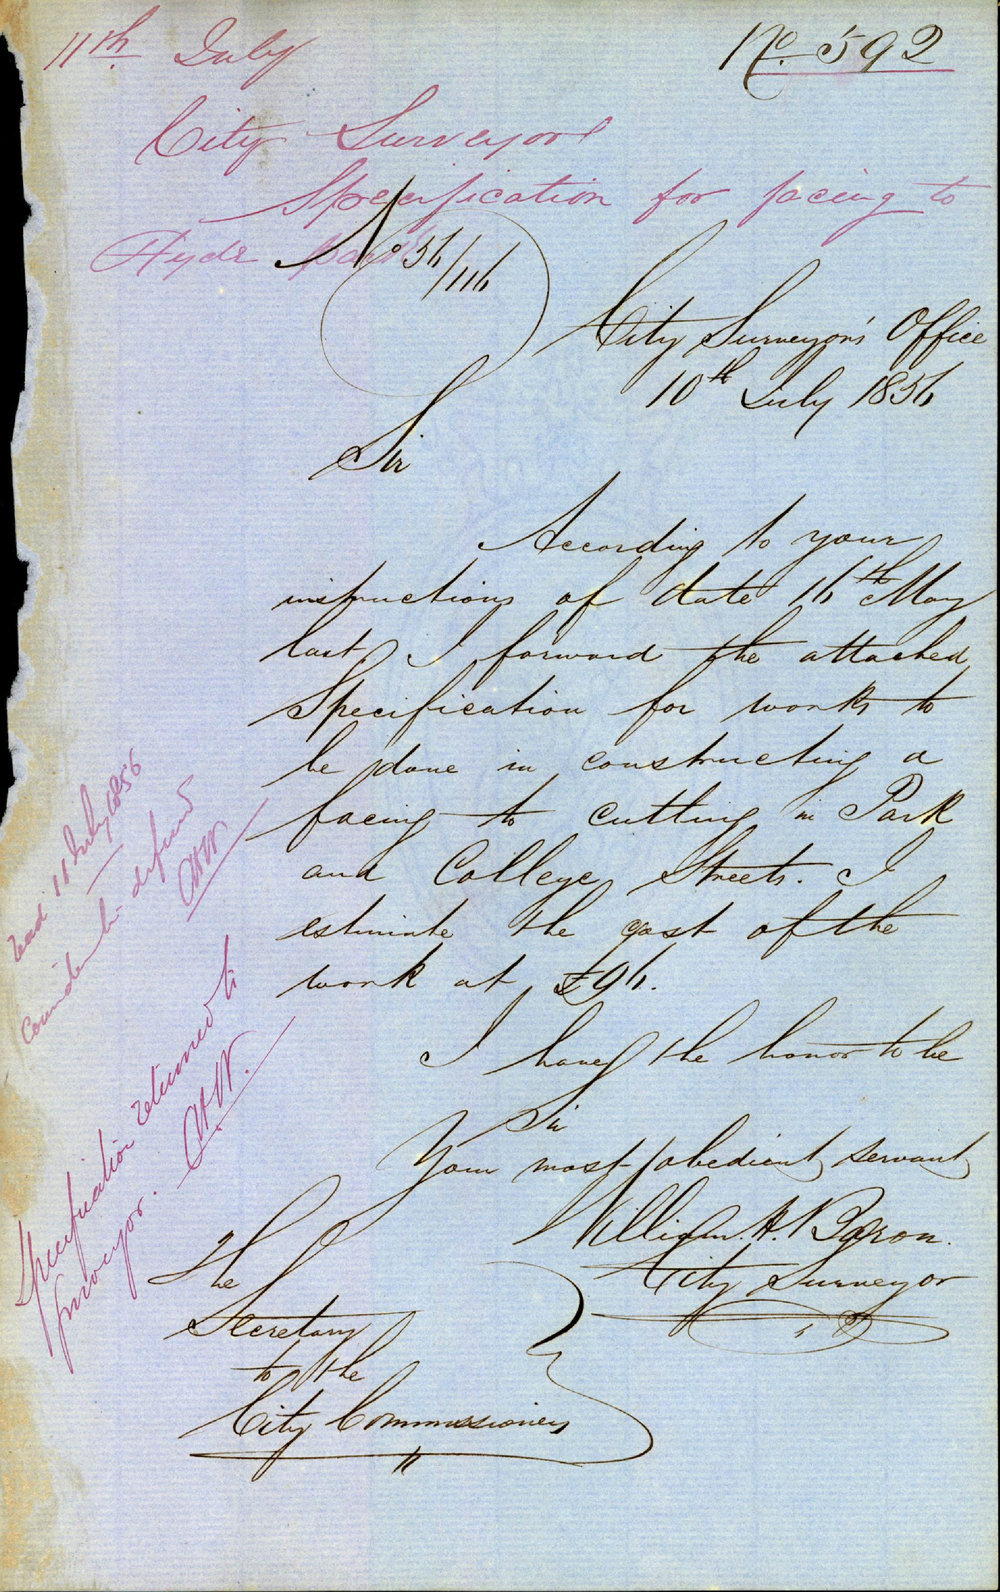 11th July
No. 592
City Surveyor
Specification for facing to
Hyde Park
No 56/116
City Surveyor's Office
10th July 1856
Sir
According to your
instructions of date 16th May
last I forward the attached
Specification for works to
be done in constructing a
facing to cutting in Park
and College Streets. I
estimate the cost of the
work at £96.
I have the honor to be
Sir
Your most obedient servant
William H. Baron.
City Surveyor
The
Secretary
to the
City Commissioners
Read 11 July 1856
consider
Specification returned to
Surveyor.